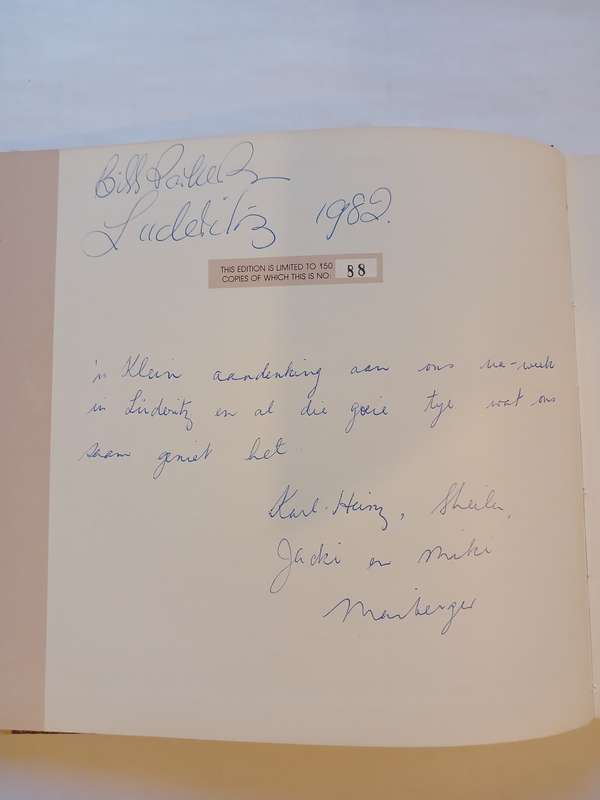 Bill
Lüderitz 1982.
THIS EDITION IS LIMITED TO 150
COPIES OF WHICH THIS IS NO: 88
'n Klein aandenking aan ons na-week
in Lüderitz en al die goeie tye wat ons
saam geniet het.
Karl-Heinz, Sheila,
Jacki en Miki
Mariberger